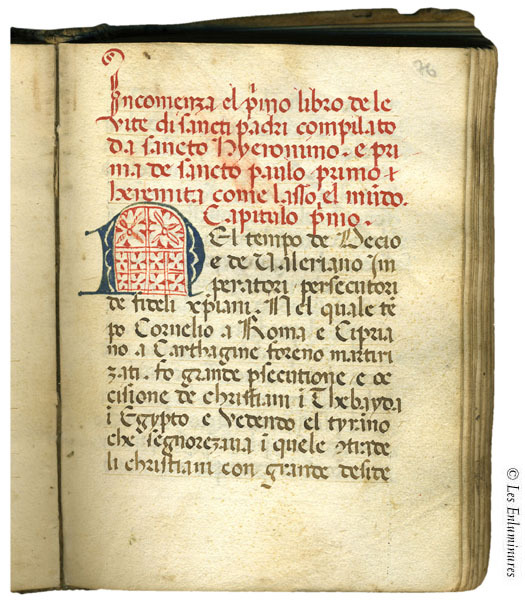 76
Incomenza el p̄mo libro de le
vite di sancti padri compilato
da sancto hyeronimo · e pri
ma de sancto paulo primo &
heremita come lasso el mūdo.
Capitulo p̄mo ·
NEl tempo de Decio
e de Valeriano Im
peratori persecutori
de fideli xp̄iani. Nel quale tē
po Cornelio a Roma e Cipria
no a Carthagine foreno martiri
zati. fo grande ꝑsecutione e oc
cisione de christiani ī Thebayda
i Egypto e vedendo el tyrāno
che segnorezaua ī quele ꝯtrade
li christiani con grande deside
© Les Enluminures